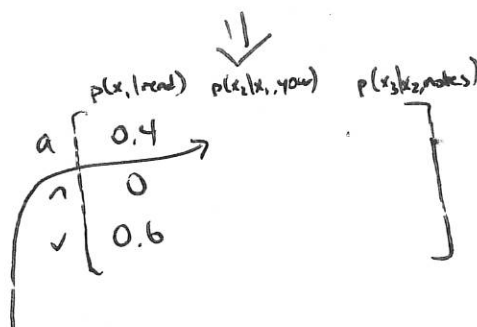 p(x₁|read) p(x₂|x₁,your) p(x₃|x₂,notes)
a 0.4
n 0
v 0.6